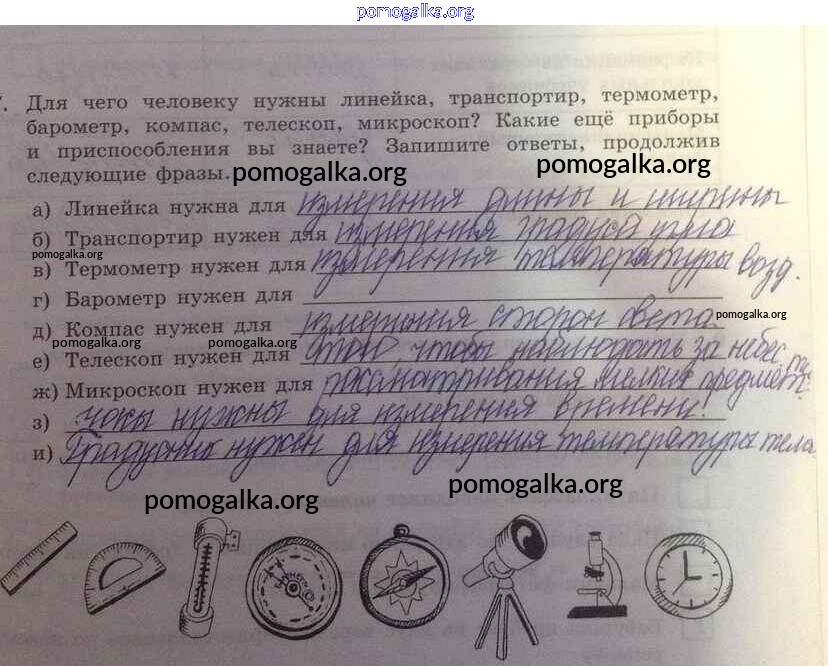 pomogalka.org
7. Для чего человеку нужны линейка, транспортир, термометр,
барометр, компас, телескоп, микроскоп? Какие ещё приборы
и приспособления вы знаете? Запишите ответы, продолжив
следующие фразы. pomogalka.org pomogalka.org
а) Линейка нужна для измерения длины и ширины
б) Транспортир нужен для измерения градуса угла
pomogalka.org
в) Термометр нужен для измерения температуры возд.
г) Барометр нужен для
д) Компас нужен для измерения сторон света. pomogalka.org
pomogalka.org pomogalka.org
е) Телескоп нужен для того, чтобы наблюдать за небес.
ж) Микроскоп нужен для рассматривания мелких предмет.
з) часы нужны для измерения времени.
и) Градусник нужен для измерения температуры тела
pomogalka.org pomogalka.org